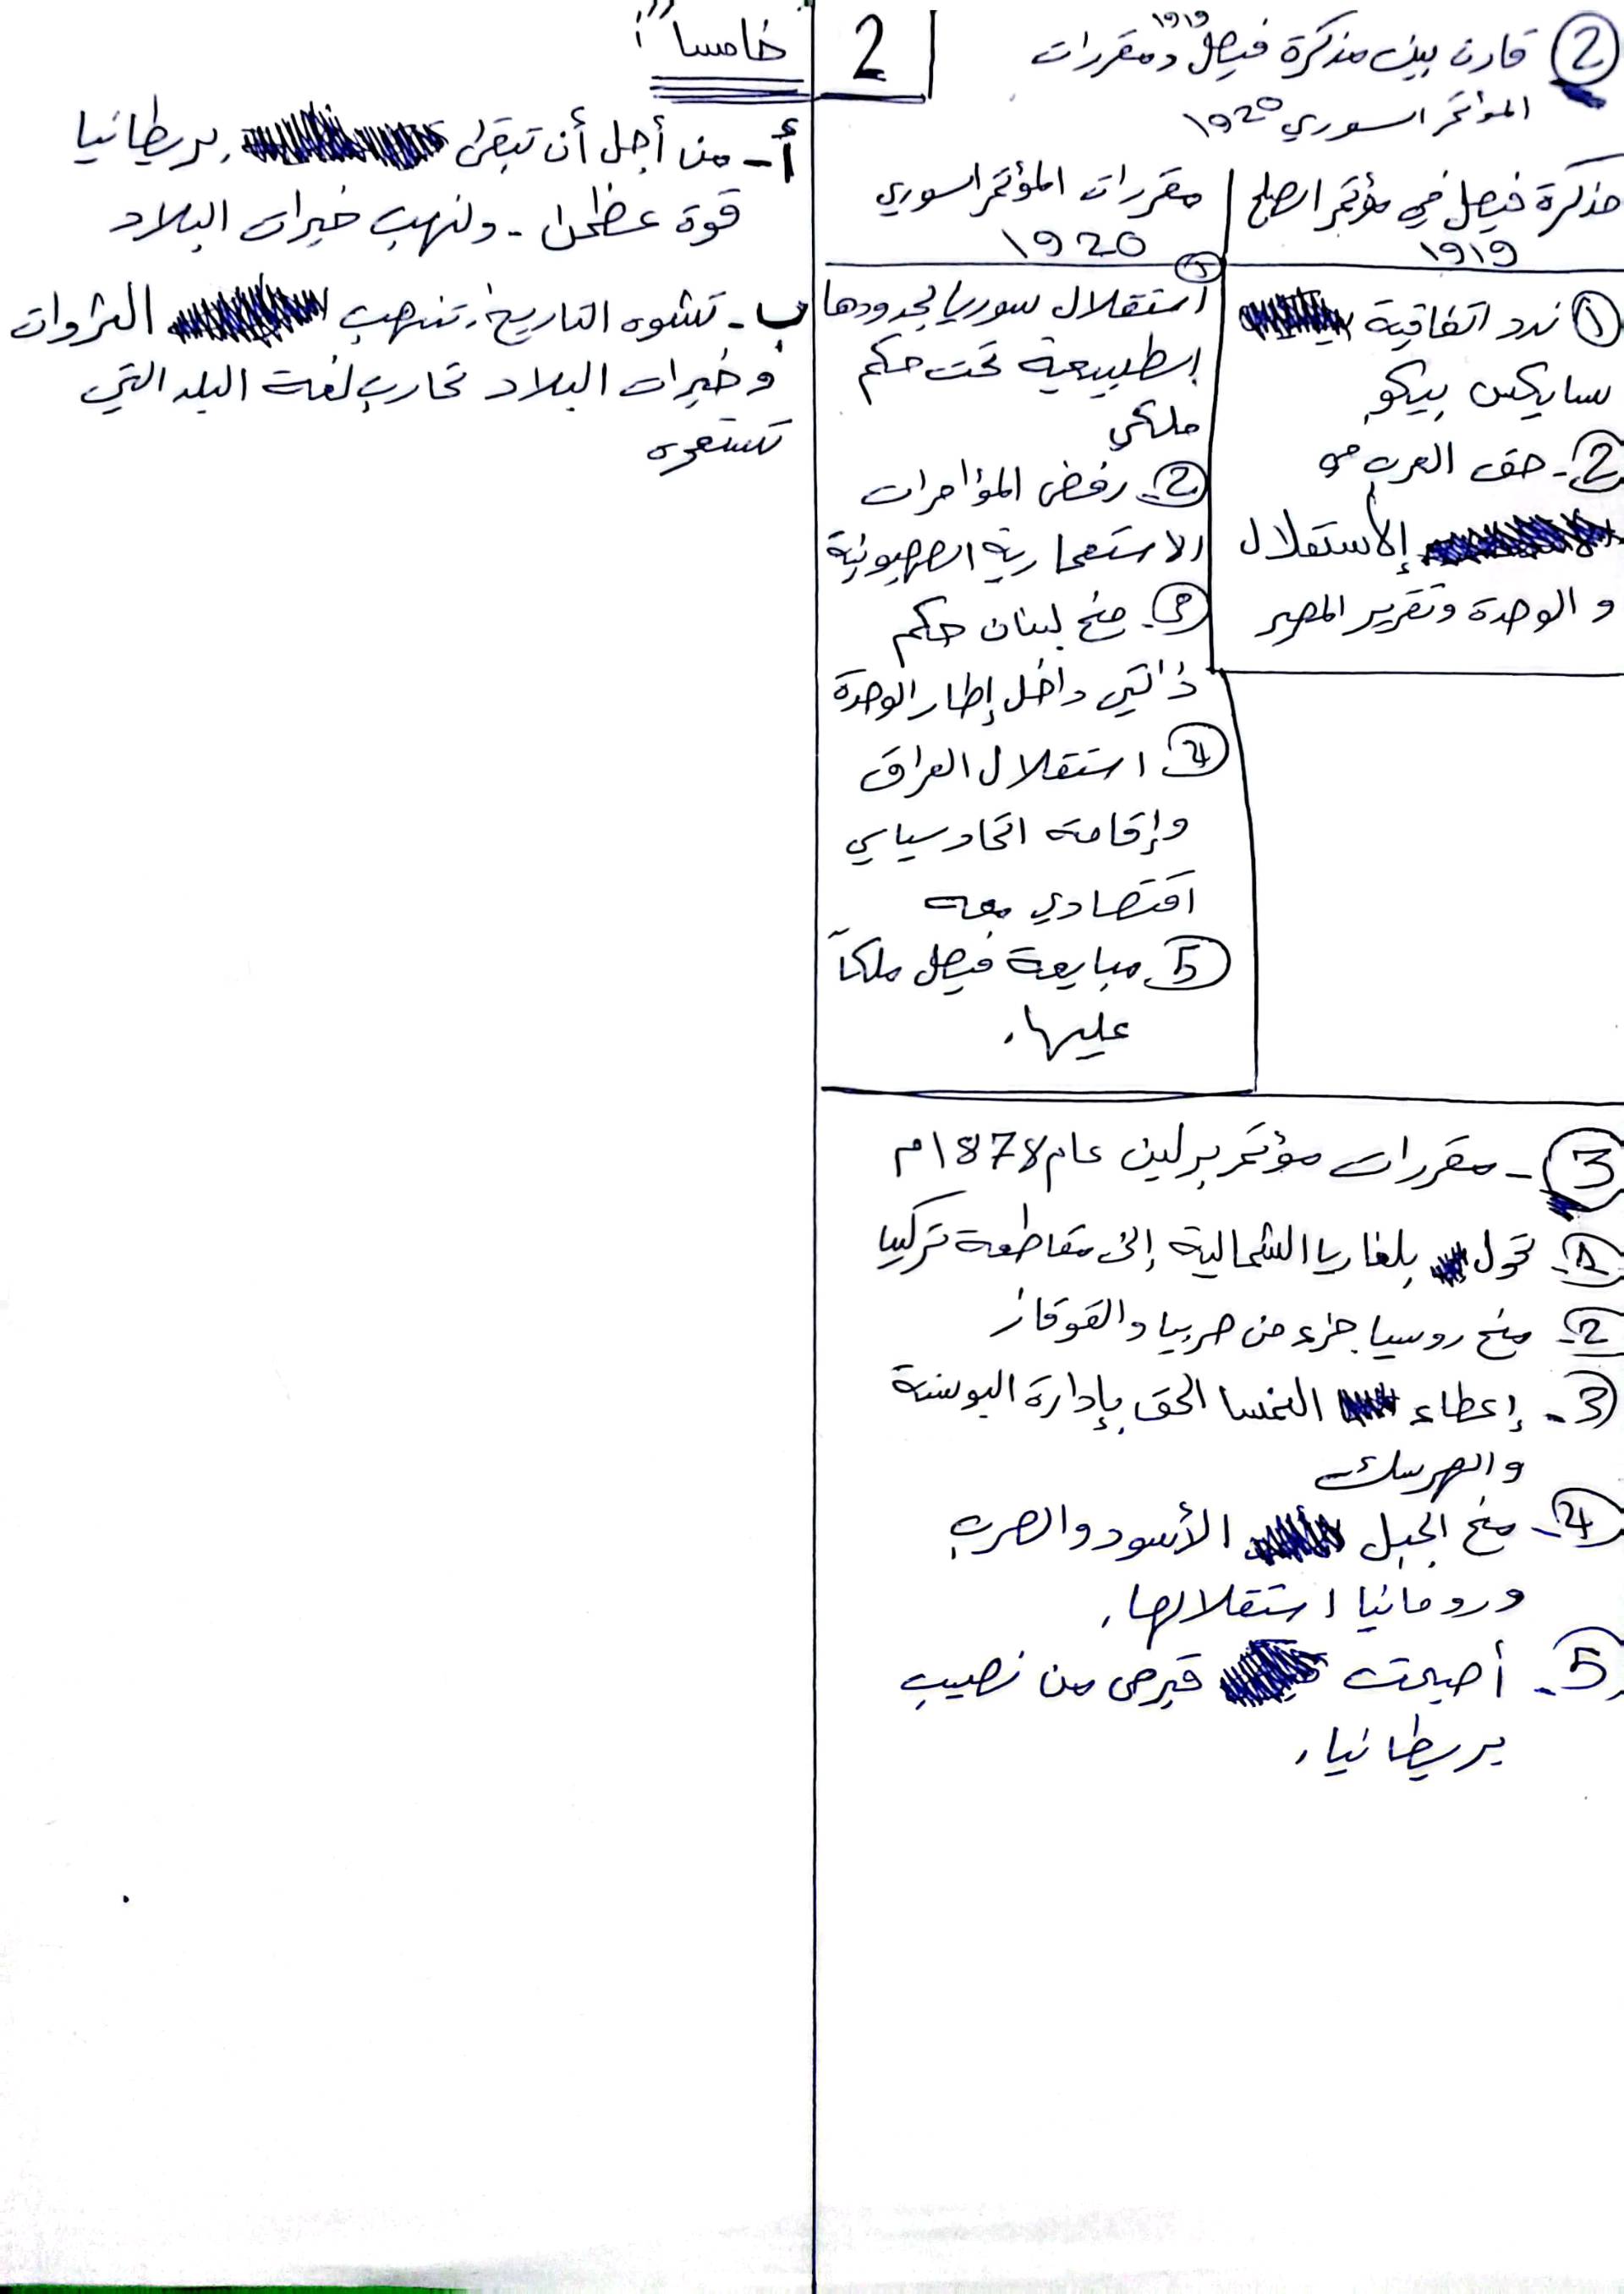 ② قارن بين مذكرة فيصل ١٩١٩ ومقررات
المؤتمر السوري ١٩٢٥
مذكرة فيصل في مؤتمر الصلح
١٩١٩
① ندد اتفاقية
سايكس بيكو
②- حق العرب في
الاستقلال
و الوحدة وتقرير المصير
مقررات المؤتمر السوري
١٩20
① استقلال سوريا بحدودها
الطبيعية تحت حكم
ملكي
②- رفض المؤامرات
الاستعمارية الصهيونية
③- منح لبنان حكم
ذاتي داخل إطار الوحدة
④- استقلال العراق
وإقامة اتحاد سياسي
اقتصادي معه
⑤- مبايعة فيصل ملكاً
عليها.
③- مقررات مؤتمر برلين عام ١878م
①- تحول بلغاريا الشمالية إلى مقاطعة تركيا
②- منح روسيا جزء من صربيا والقوقاز
③- إعطاء النمسا الحق بإدارة البوسنة
والهرسك
④- منح الجبل الأسود والصرب
ورومانيا استقلالها.
⑤- أصبحت قبرص من نصيب
بريطانيا.
2
خامساً:
أ- من أجل أن تبقى بريطانيا
قوة عظمى - ولنهب خيرات البلاد
ب- تشوه التاريخ. تنهب الثروات
وخيرات البلاد تحارب لغة البلد التي
تستعمره